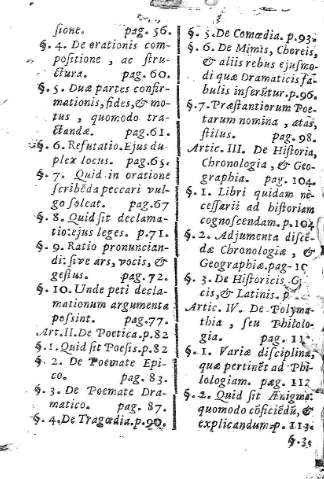 sione. pag. 56.
§. 4. De orationis com-
positione, ac stru-
ctura. pag. 60.
§. 5. Duæ partes confir-
mationis, fides, & mo-
tus, quomodo tra-
ctandæ. pag. 61.
§. 6. Refutatio. Ejus du
plex locus. pag. 65.
§. 7. Quid in oratione
scribẽda peccari vul-
go soleat. pag. 67
§. 8. Quid sit declama-
tio: ejus leges. p. 71.
§. 9. Ratio pronuncian-
di: sive ars, vocis, &
gestus. pag. 72.
§. 10. Unde peti decla-
mationum argumenta
possint. pag. 77.
Art. II. De Poetica. p. 82
§. 1. Quid sit Poesis. p. 82
§. 2. De Poemate Epi-
co. pag. 83.
§. 3. De Poemate Dra-
matico. pag. 87.
§. 4. De Tragœdia. p. 90.
§. 5. De Comœdia. p. 93.
§. 6. De Mimis, Choreis,
& aliis rebus ejusmo-
di quæ Dramaticis fa-
bulis inserũtur. p. 96.
§. 7. Præstantiorum Poe-
tarum nomina, ætas,
stilus. pag. 98.
Artic. III. De Historia,
Chronologia, & Geo-
graphia. pag. 104.
§. 1. Libri quidam ne-
cessarii ad historiam
cognoscendam. p. 104
§. 2. Adjumenta discẽ-
dæ Chronologiæ, &
Geographiæ. pag. 10
§. 3. De Historicis
cis, & Latinis. p
Artic. IV. De Polyma-
thia, seu Philolo-
gia. pag. 11
§. 1. Variæ disciplinæ,
quæ pertinẽt ad Phi-
lologiam. pag. 112
§. 2. Quid sit Ænigma:
quomodo cõficiẽdũ, &
explicandum. p. 113.
§. 3.